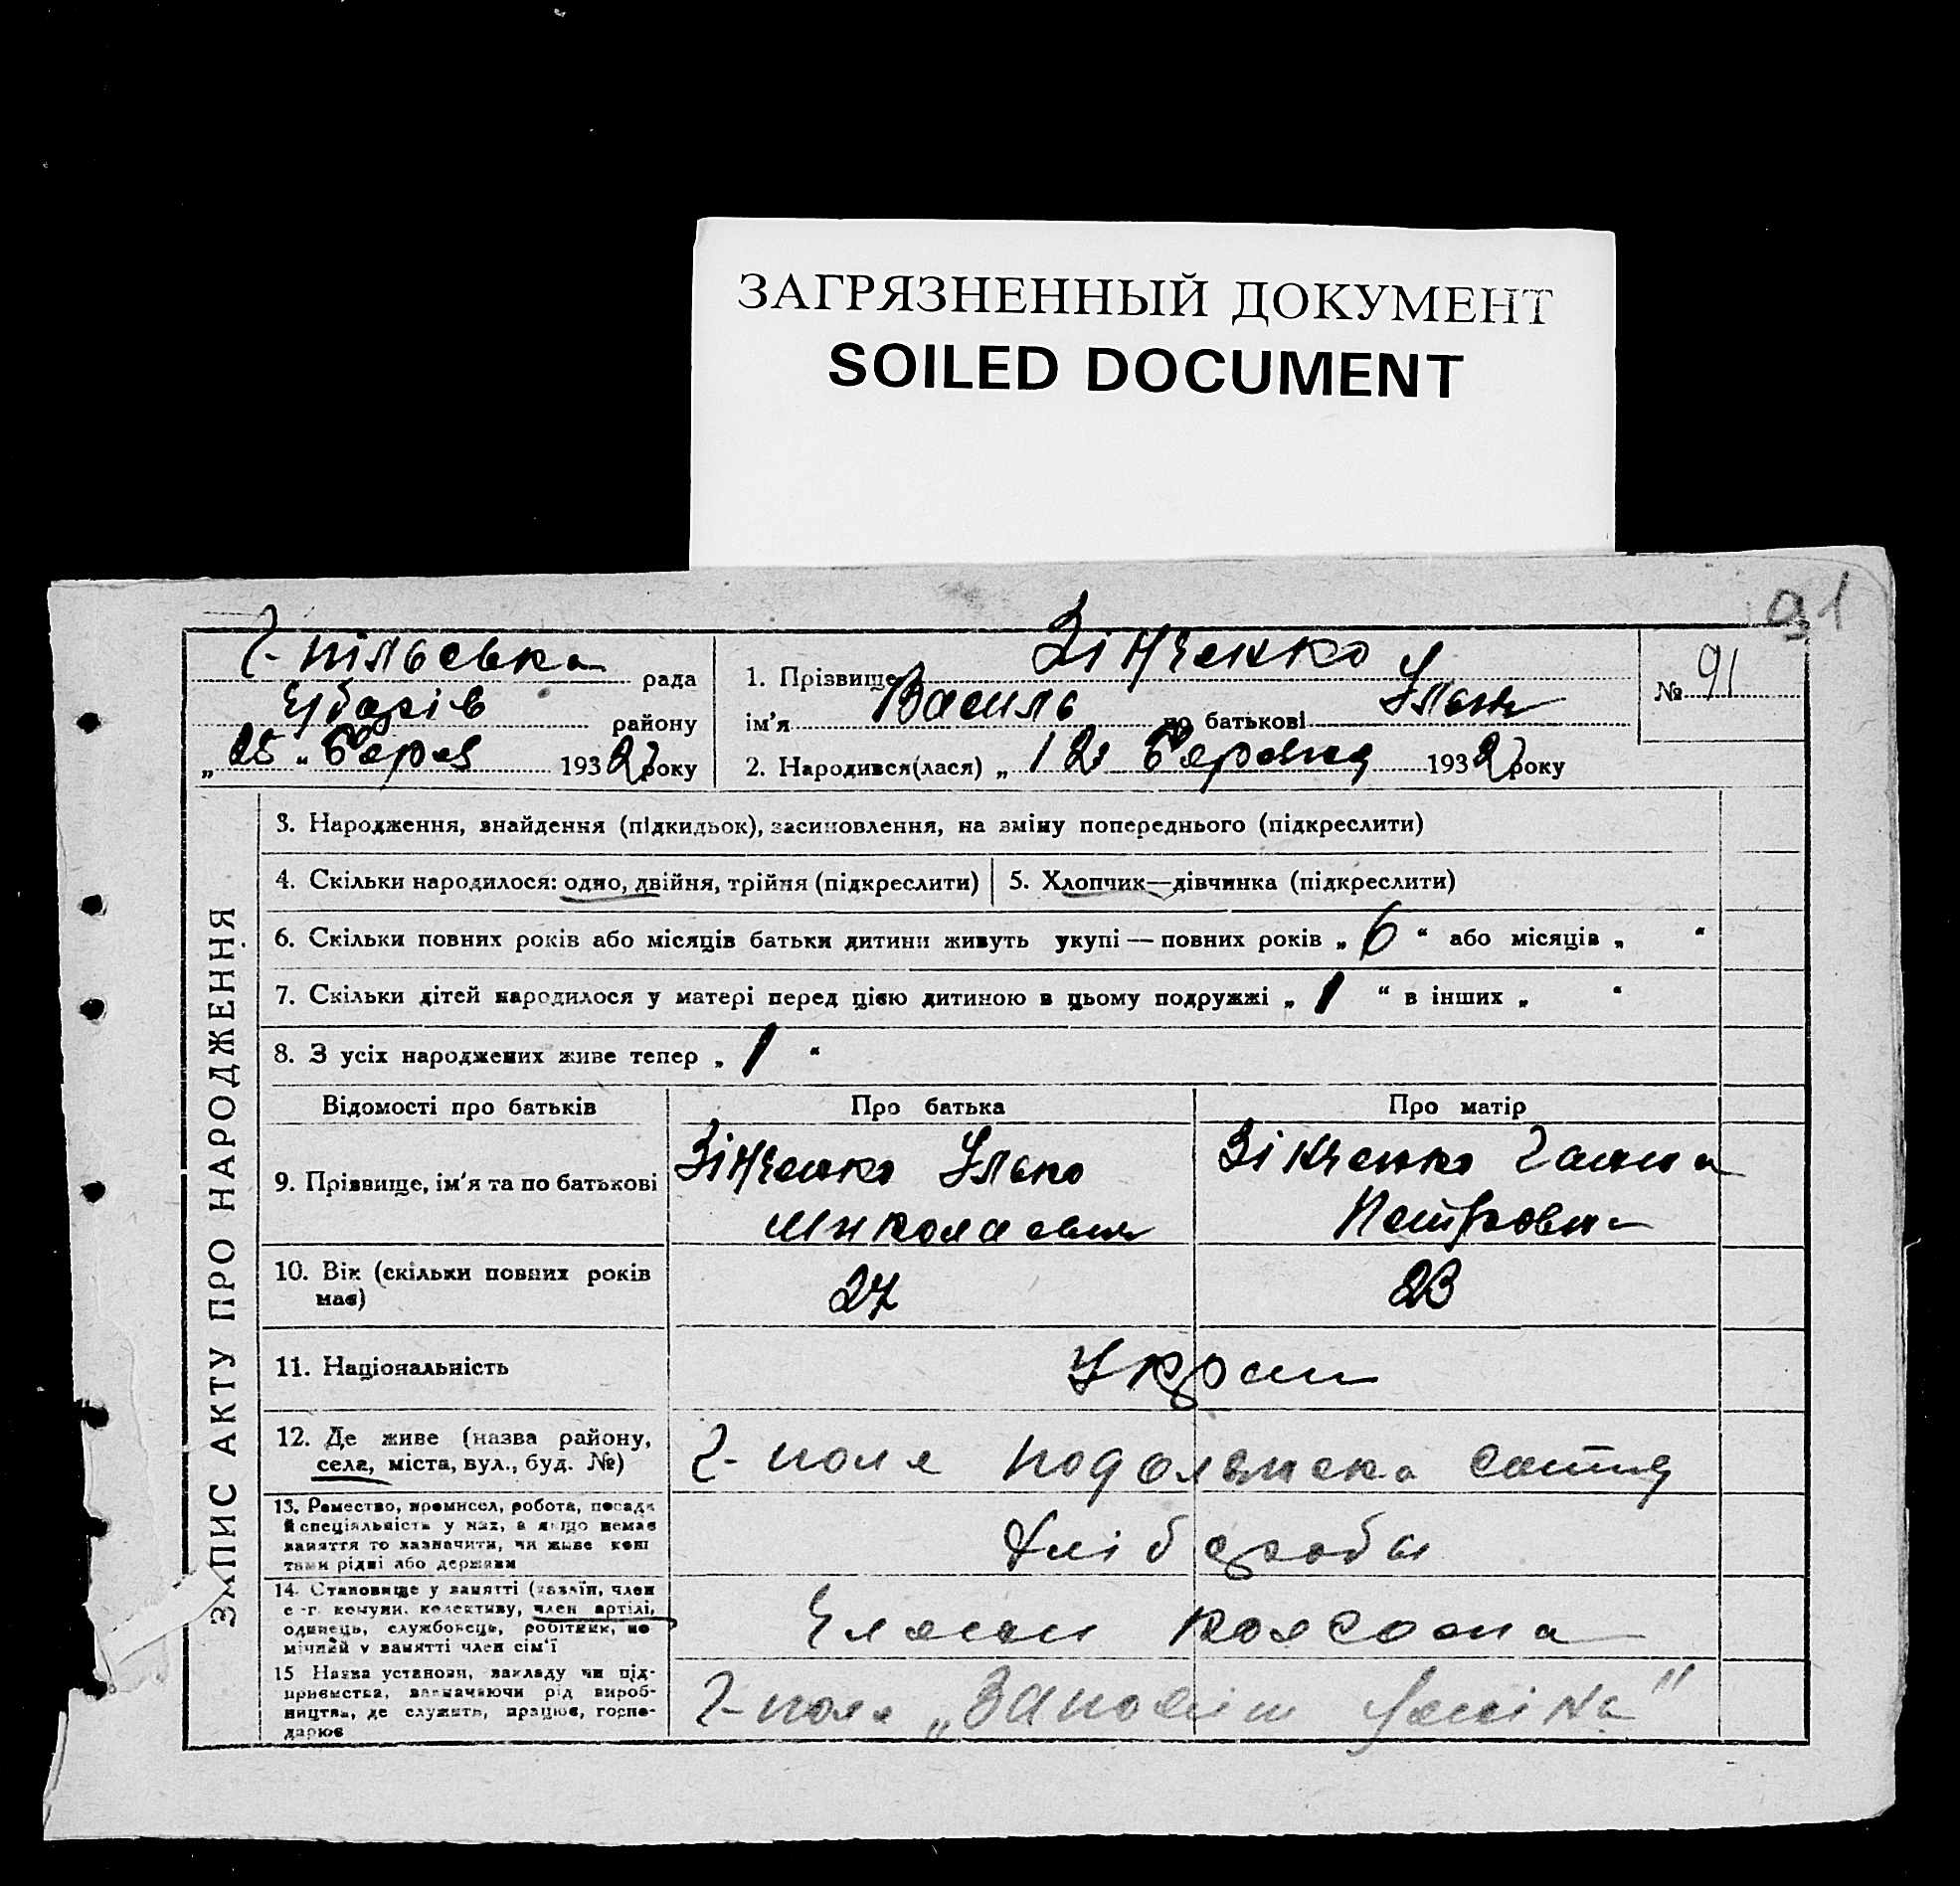 ЗАГРЯЗНЕННЫЙ ДОКУМЕНТ
SOILED DOCUMENT
91
Г-пільська рада
Чубарів району
„25" берез 1932 року
1. Прізвище Зінченко
ім'я Василь по батькові Ульян
2. Народився(лася) „12 березня 1932 року
№ 91
ЗАПИС АКТУ ПРО НАРОДЖЕННЯ
3. Народження, знайдення (підкидьок), засиновлення, на зміну попереднього (підкреслити)
4. Скільки народилося: одно, двійня, трійня (підкреслити)
5. Хлопчик—дівчинка (підкреслити)
6. Скільки повних років або місяців батьки дитини живуть укупі — повних років „6" або місяців „ "
7. Скільки дітей народилося у матері перед цією дитиною в цьому подружжі „1" в інших „ "
8. З усіх народжених живе тепер „1"
Відомості про батьків
Про батька
Про матір
9. Прізвище, ім'я та по батькові
Зінченко Улян
Миколаевич
Зінченко Ганна
Петровна
10. Вік (скільки повних років
має)
27
23
11. Національність
Украи
12. Де живе (назва району,
села, міста, вул., буд. №)
Г-поле
13. Ремество, промисел, робота, посада
й спеціяльність у них, а якщо немає
заняття то зазначити, чи живе кош
тами рідні або держави
Хлібороби
14. Становище у занятті (хазяїн, член
с-г. комуни, колективу, член артілі,
одинець, службовець, робітник, по
мічний у занятті член сім'ї
Члени
15 Назва установи, закладу чи під-
приємства, зазначаючи рід вироб-
ництва, де служить, працює, госпо-
дарює
Г-поле „Заповіт Леніна"